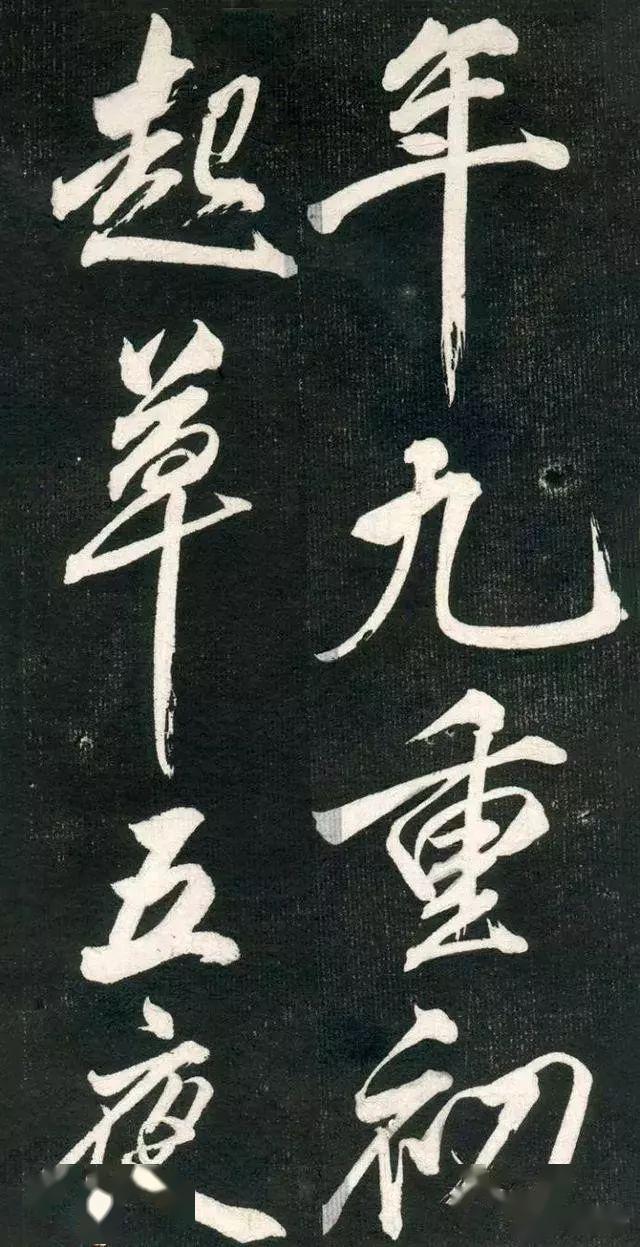 年九重初
起草五夜